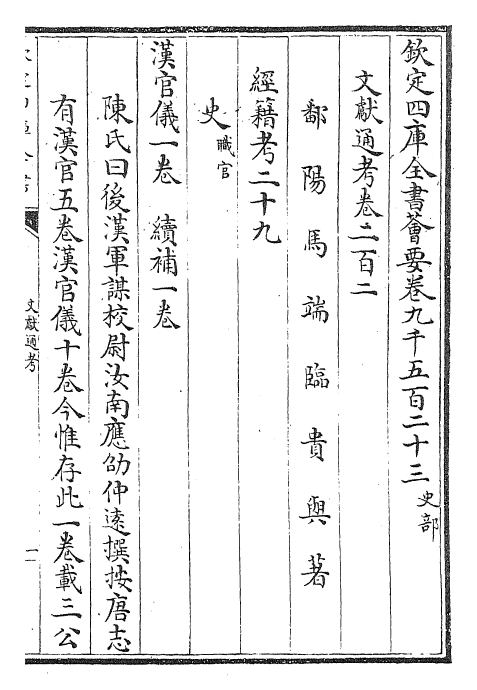 欽定四庫全書薈要卷九千五百二十三史部
文獻通考卷二百二
鄱陽馬端臨貴與著
經籍考二十九
史職官
漢官儀一卷　續補一卷
陳氏曰後漢軍謀校尉汝南應劭仲遠撰按唐志
有漢官五卷漢官儀十卷今惟存此一卷載三公
文獻通考
一